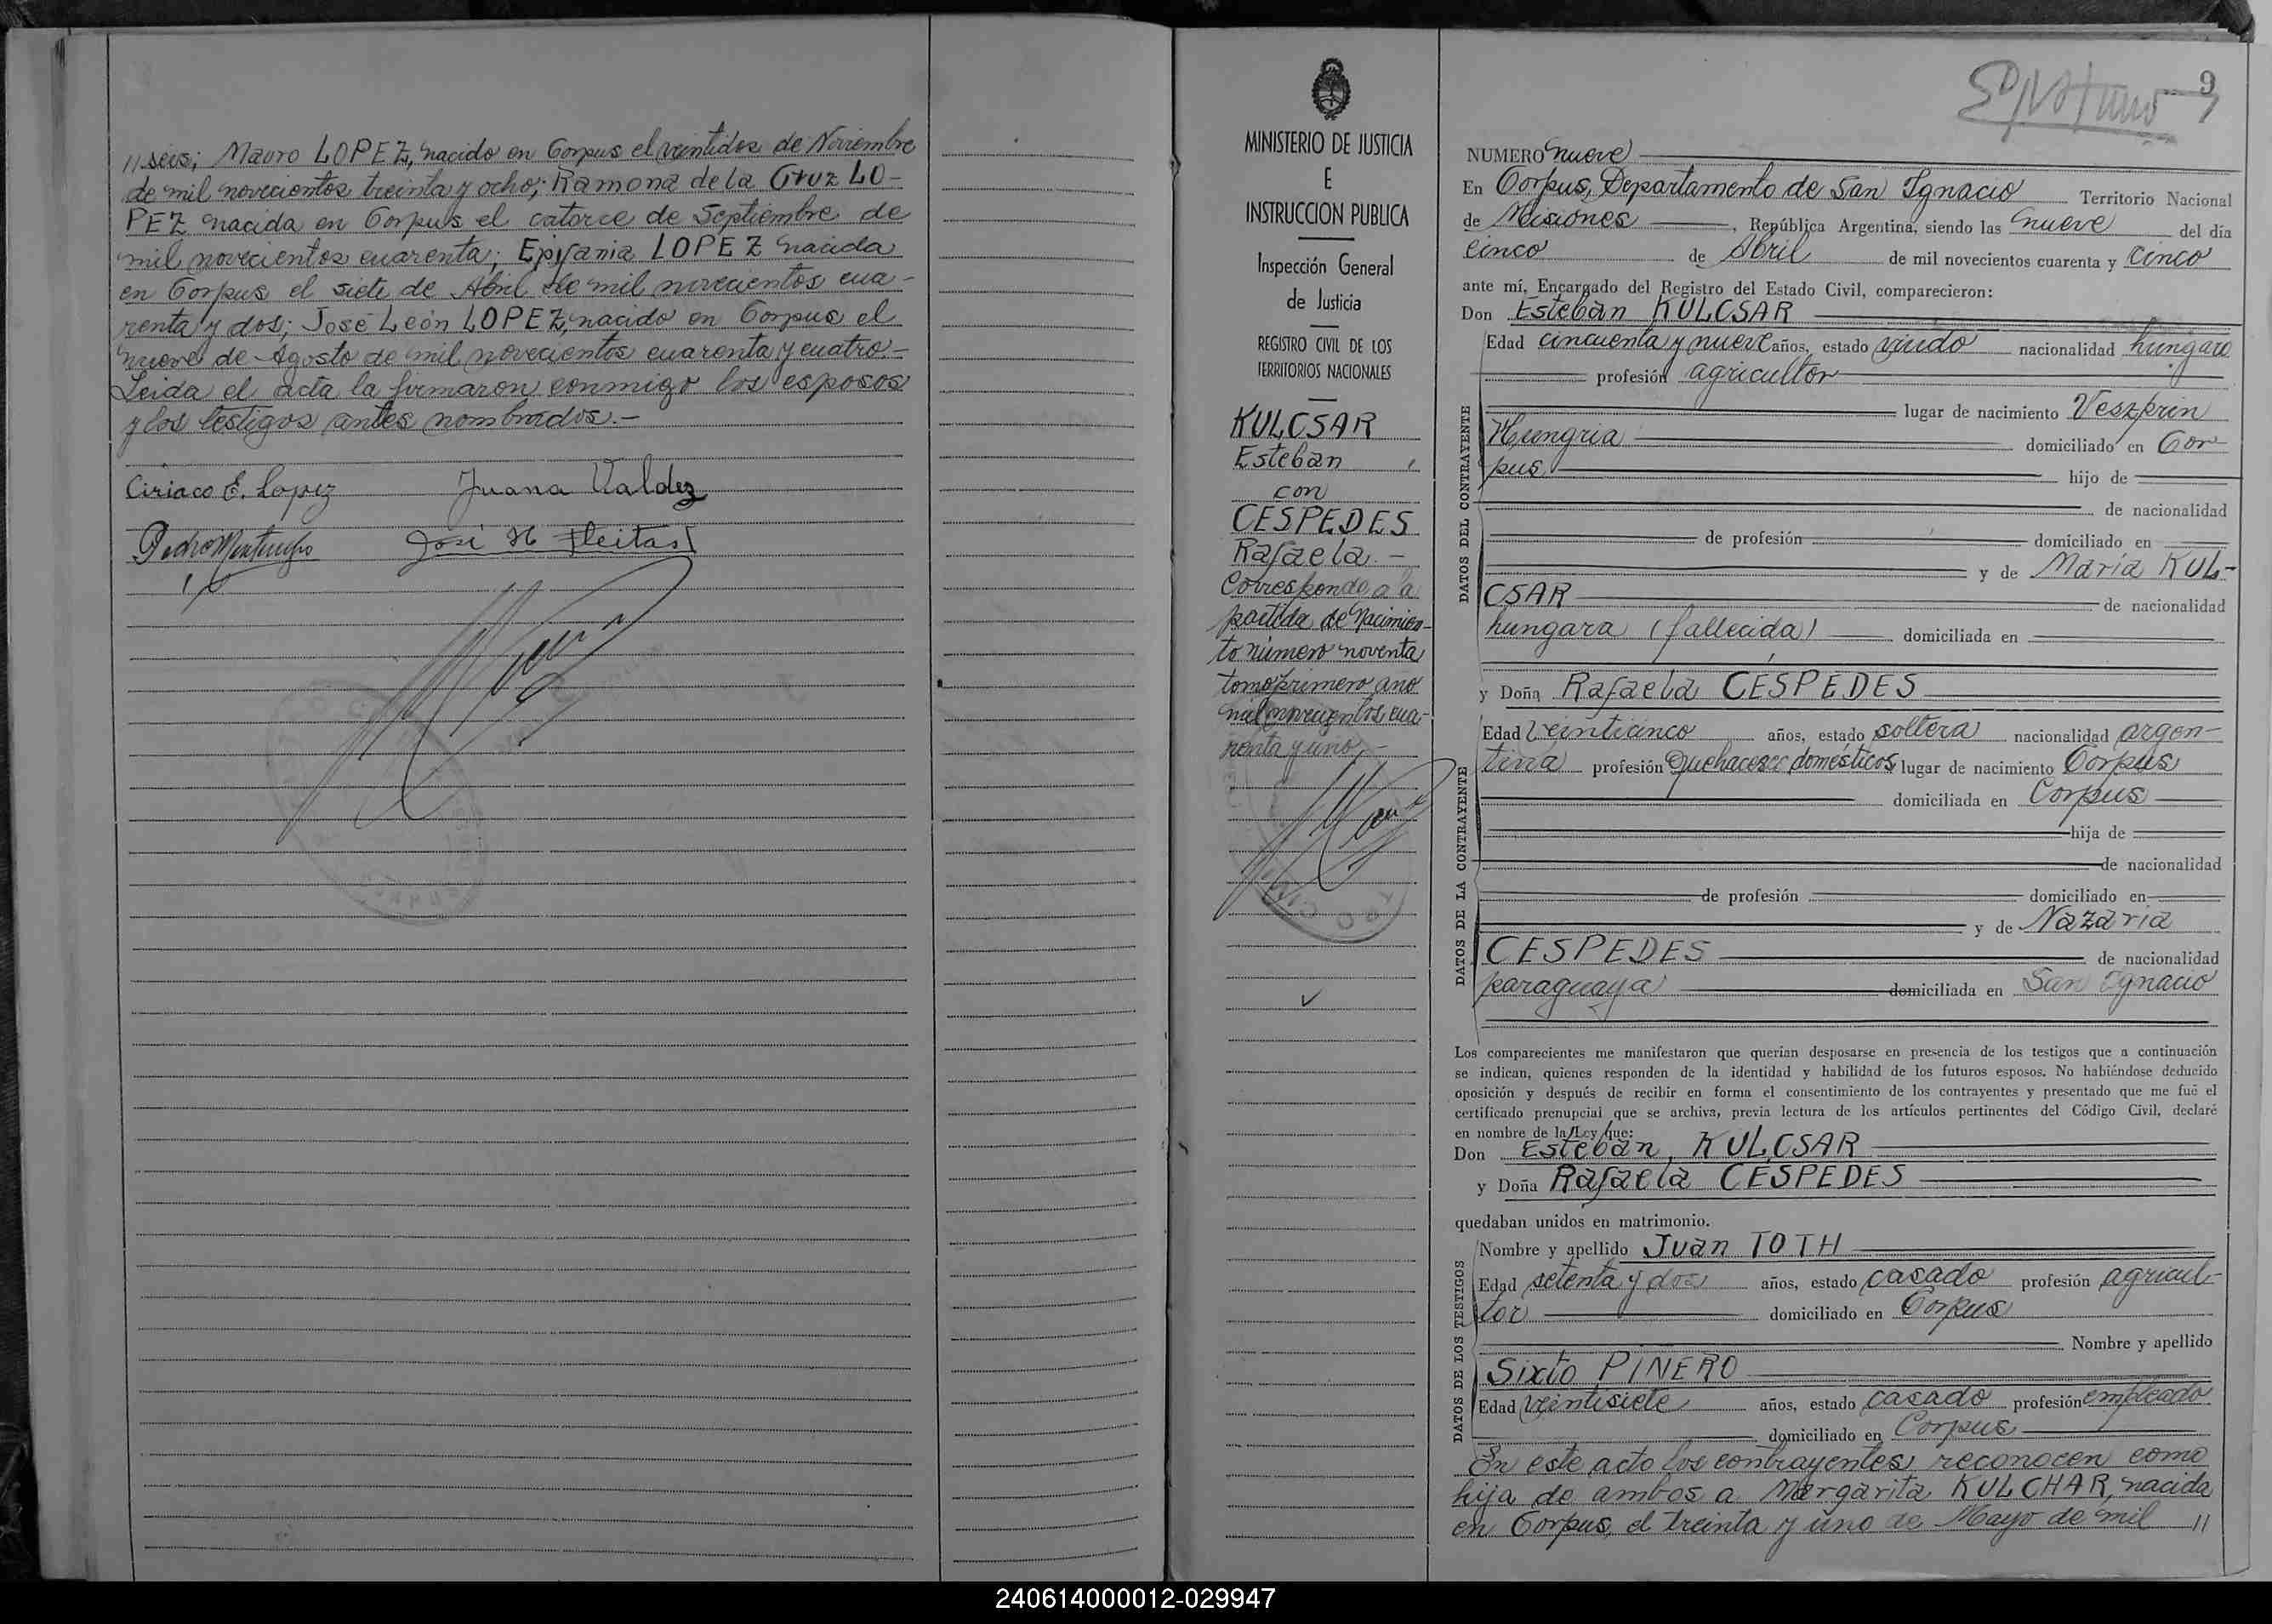 //seis; Mauro LOPEZ, nacido en Corpus el veintidos de Noviembre
de mil novecientos treinta y ocho; Ramona de la Cruz LO-
PEZ nacida en Corpus el catorce de Septiembre de
mil novecientos cuarenta; Epifania LOPEZ nacida
en Corpus el siete de Abril de mil novecientos cua-
renta y dos; José León LOPEZ, nacido en Corpus el
nueve de Agosto de mil novecientos cuarenta y cuatro.-
Leida el acta la firmaron conmigo los esposos
y los testigos antes nombrados.-
Ciriaco E. Lopez Juana Valdez
Pedro José M Fleitas
MINISTERIO DE JUSTICIA
E
INSTRUCCION PUBLICA
Inspección General
de Justicia
REGISTRO CIVIL DE LOS
TERRITORIOS NACIONALES
KULCSAR
Esteban
con
CESPEDES
Rafaela.-
Corresponde a la
partida de Nacimien-
to número noventa
tomo primero año
mil novecientos cua-
renta y uno.-
9
NUMERO nueve
En Corpus, Departamento de San Ignacio Territorio Nacional
de Misiones, República Argentina, siendo las nueve del día
cinco de Abril de mil novecientos cuarenta y cinco
ante mí, Encargado del Registro del Estado Civil, comparecieron:
Don Esteban KULCSAR
DATOS DEL CONTRAYENTE
Edad cincuenta y nueve años, estado viudo nacionalidad húngaro
profesión agricultor
lugar de nacimiento Veszprin
Hungria domiciliado en Cor
pus hijo de
de nacionalidad
de profesión domiciliado en
y de María KUL-
CSAR de nacionalidad
húngara (fallecida) domiciliada en
y Doña Rafaela CESPEDES
DATOS DE LA CONTRAYENTE
Edad veinticinco años, estado soltera nacionalidad argen-
tina profesión Quehaceres domésticos lugar de nacimiento Corpus
domiciliada en Corpus
hija de
de nacionalidad
de profesión domiciliado en
y de Nazaria
CESPEDES de nacionalidad
paraguaya domiciliada en San Ignacio
Los comparecientes me manifestaron que querían desposarse en presencia de los testigos que a continuación
se indican, quienes responden de la identidad y habilidad de los futuros esposos. No habiéndose deducido
oposición y después de recibir en forma el consentimiento de los contrayentes y presentado que me fué el
certificado prenupcial que se archiva, previa lectura de los artículos pertinentes del Código Civil, declaré
en nombre de la Ley que:
Don Esteban KULCSAR
y Doña Rafaela CESPEDES
quedaban unidos en matrimonio.
DATOS DE LOS TESTIGOS
Nombre y apellido Juan TOTH
Edad setenta y dos años, estado casado profesión agricul-
tor domiciliado en Corpus
Nombre y apellido
Sixto PINERO
Edad veintisiete años, estado casado profesión empleado
domiciliado en Corpus
En este acto los contrayentes reconocen como
hija de ambos a Margarita KULCHAR, nacida
en Corpus, el treinta y uno de Mayo de mil //
240614000012-029947